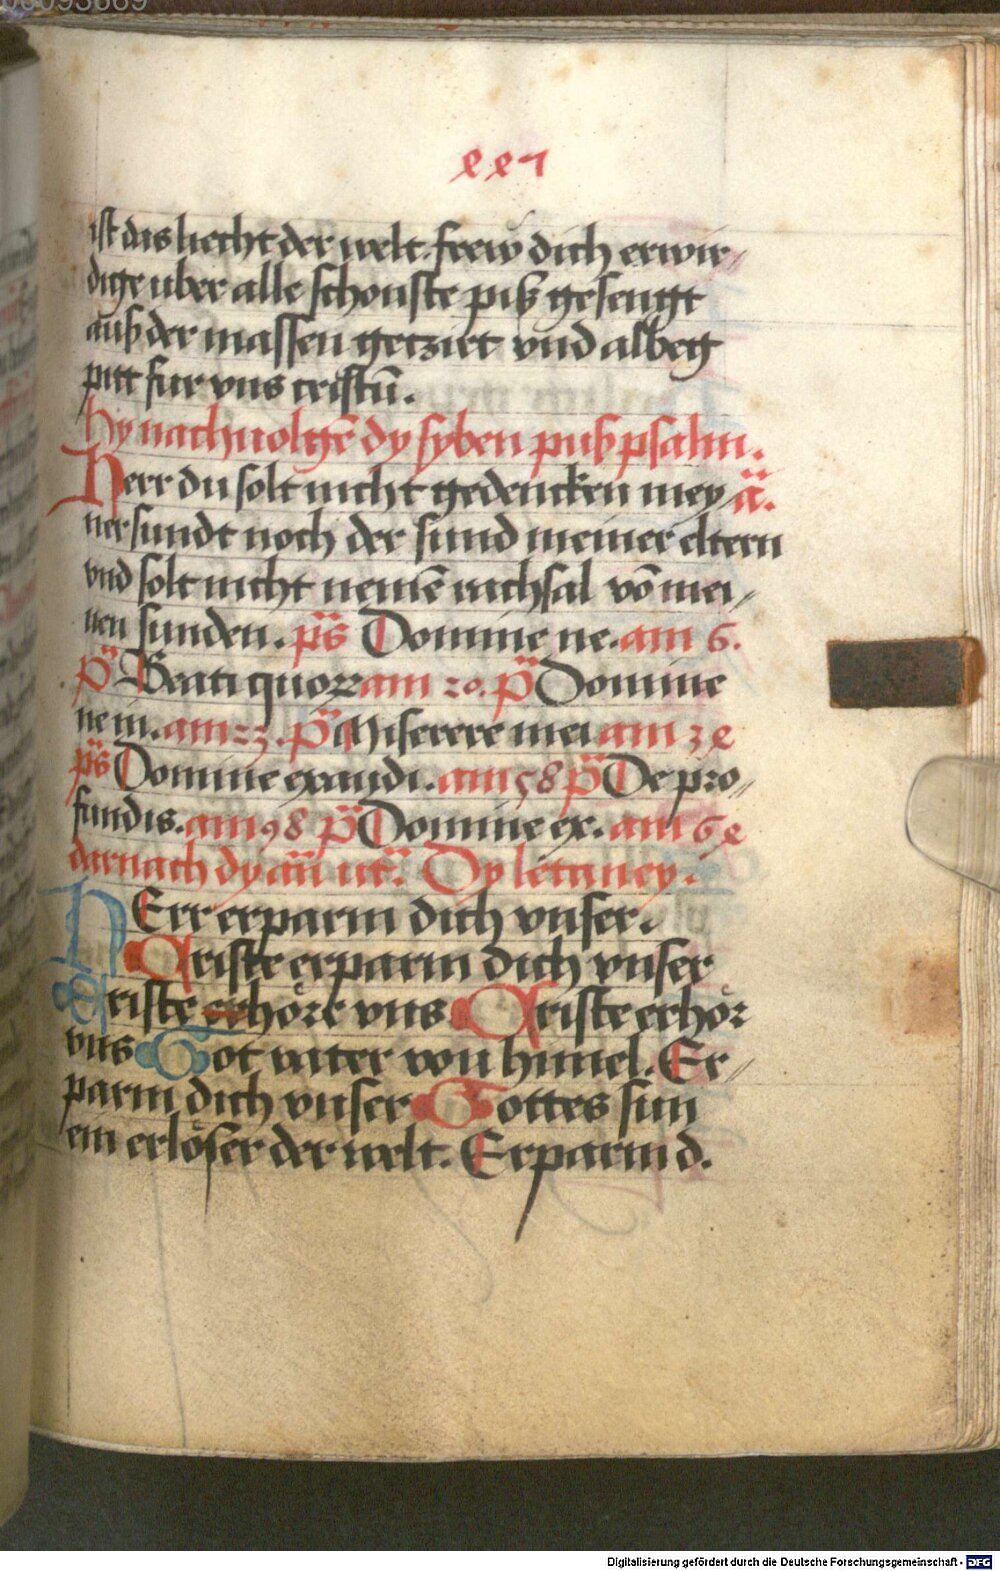 ist das liecht der welt. frew dich erwir-
dige uber alle schonste piß gesengt
auß der massen getzirt vnd albeg
pitt fur vns cristū.
Hy nachuolgē dy syben pusß psalm.
Herr du solt nicht gedencken mey ā.
ner sundt noch der sund meiner eltern
vnd solt nicht nemē rachsal vō mei-
nen sunden. ps Domine ne. am 6.
ps Beati quorꝝ am 20. ps Domine
ne in. am 23. ps Miserere mei am 38
ps Domine exaudi. am 58 ps De pro-
fundis. am 98 ps Domine ex. am 68
darnach dy āu ut. Dy letaney.
HErr erparm dich vnser.
Criste erparm dich vnser
Criste erhöre vns Criste erhör
vns Got vater von himel. Er-
parm dich vnser Gottes sun
ein erlöser der welt. Erparm d.
Digitalisierung gefördert durch die Deutsche Forschungsgemeinschaft - DFG